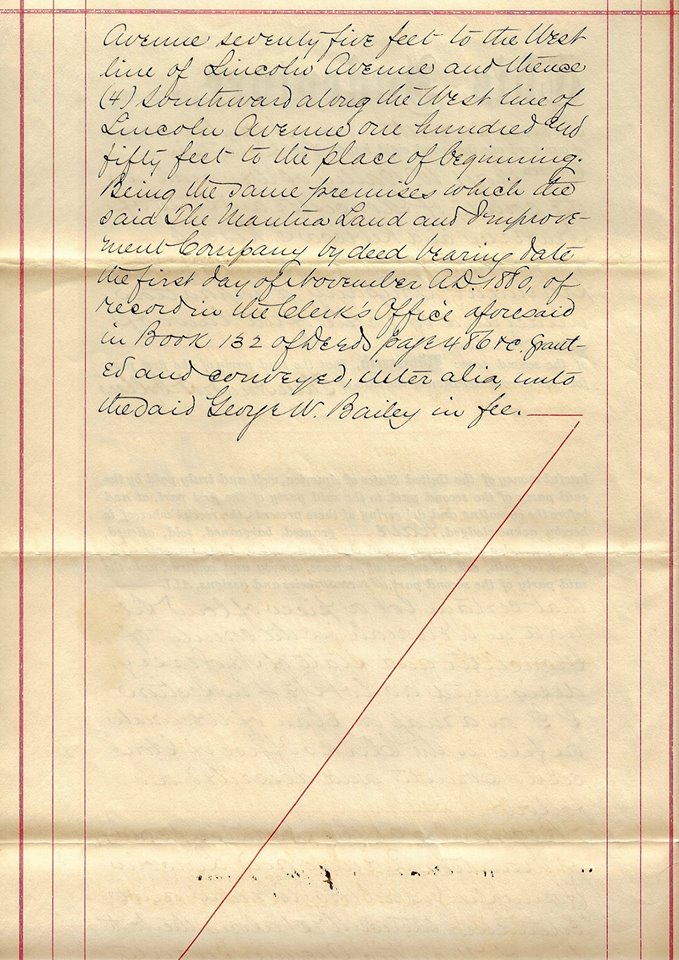 Avenue seventy five feet to the West
line of Lincoln Avenue and thence
(4) Southward along the West line of
Lincoln Avenue one hundred and
fifty feet to the place of beginning.
Being the same premises which the
said The Mantua Land and Improve-
ment Company by deed bearing date
the first day of November A.D. 1880, of
record in the Clerk's Office aforesaid
in Book 132 of Deeds page 486 &c. grant-
ed and conveyed, inter alia, unto
the said George W. Bailey in fee.